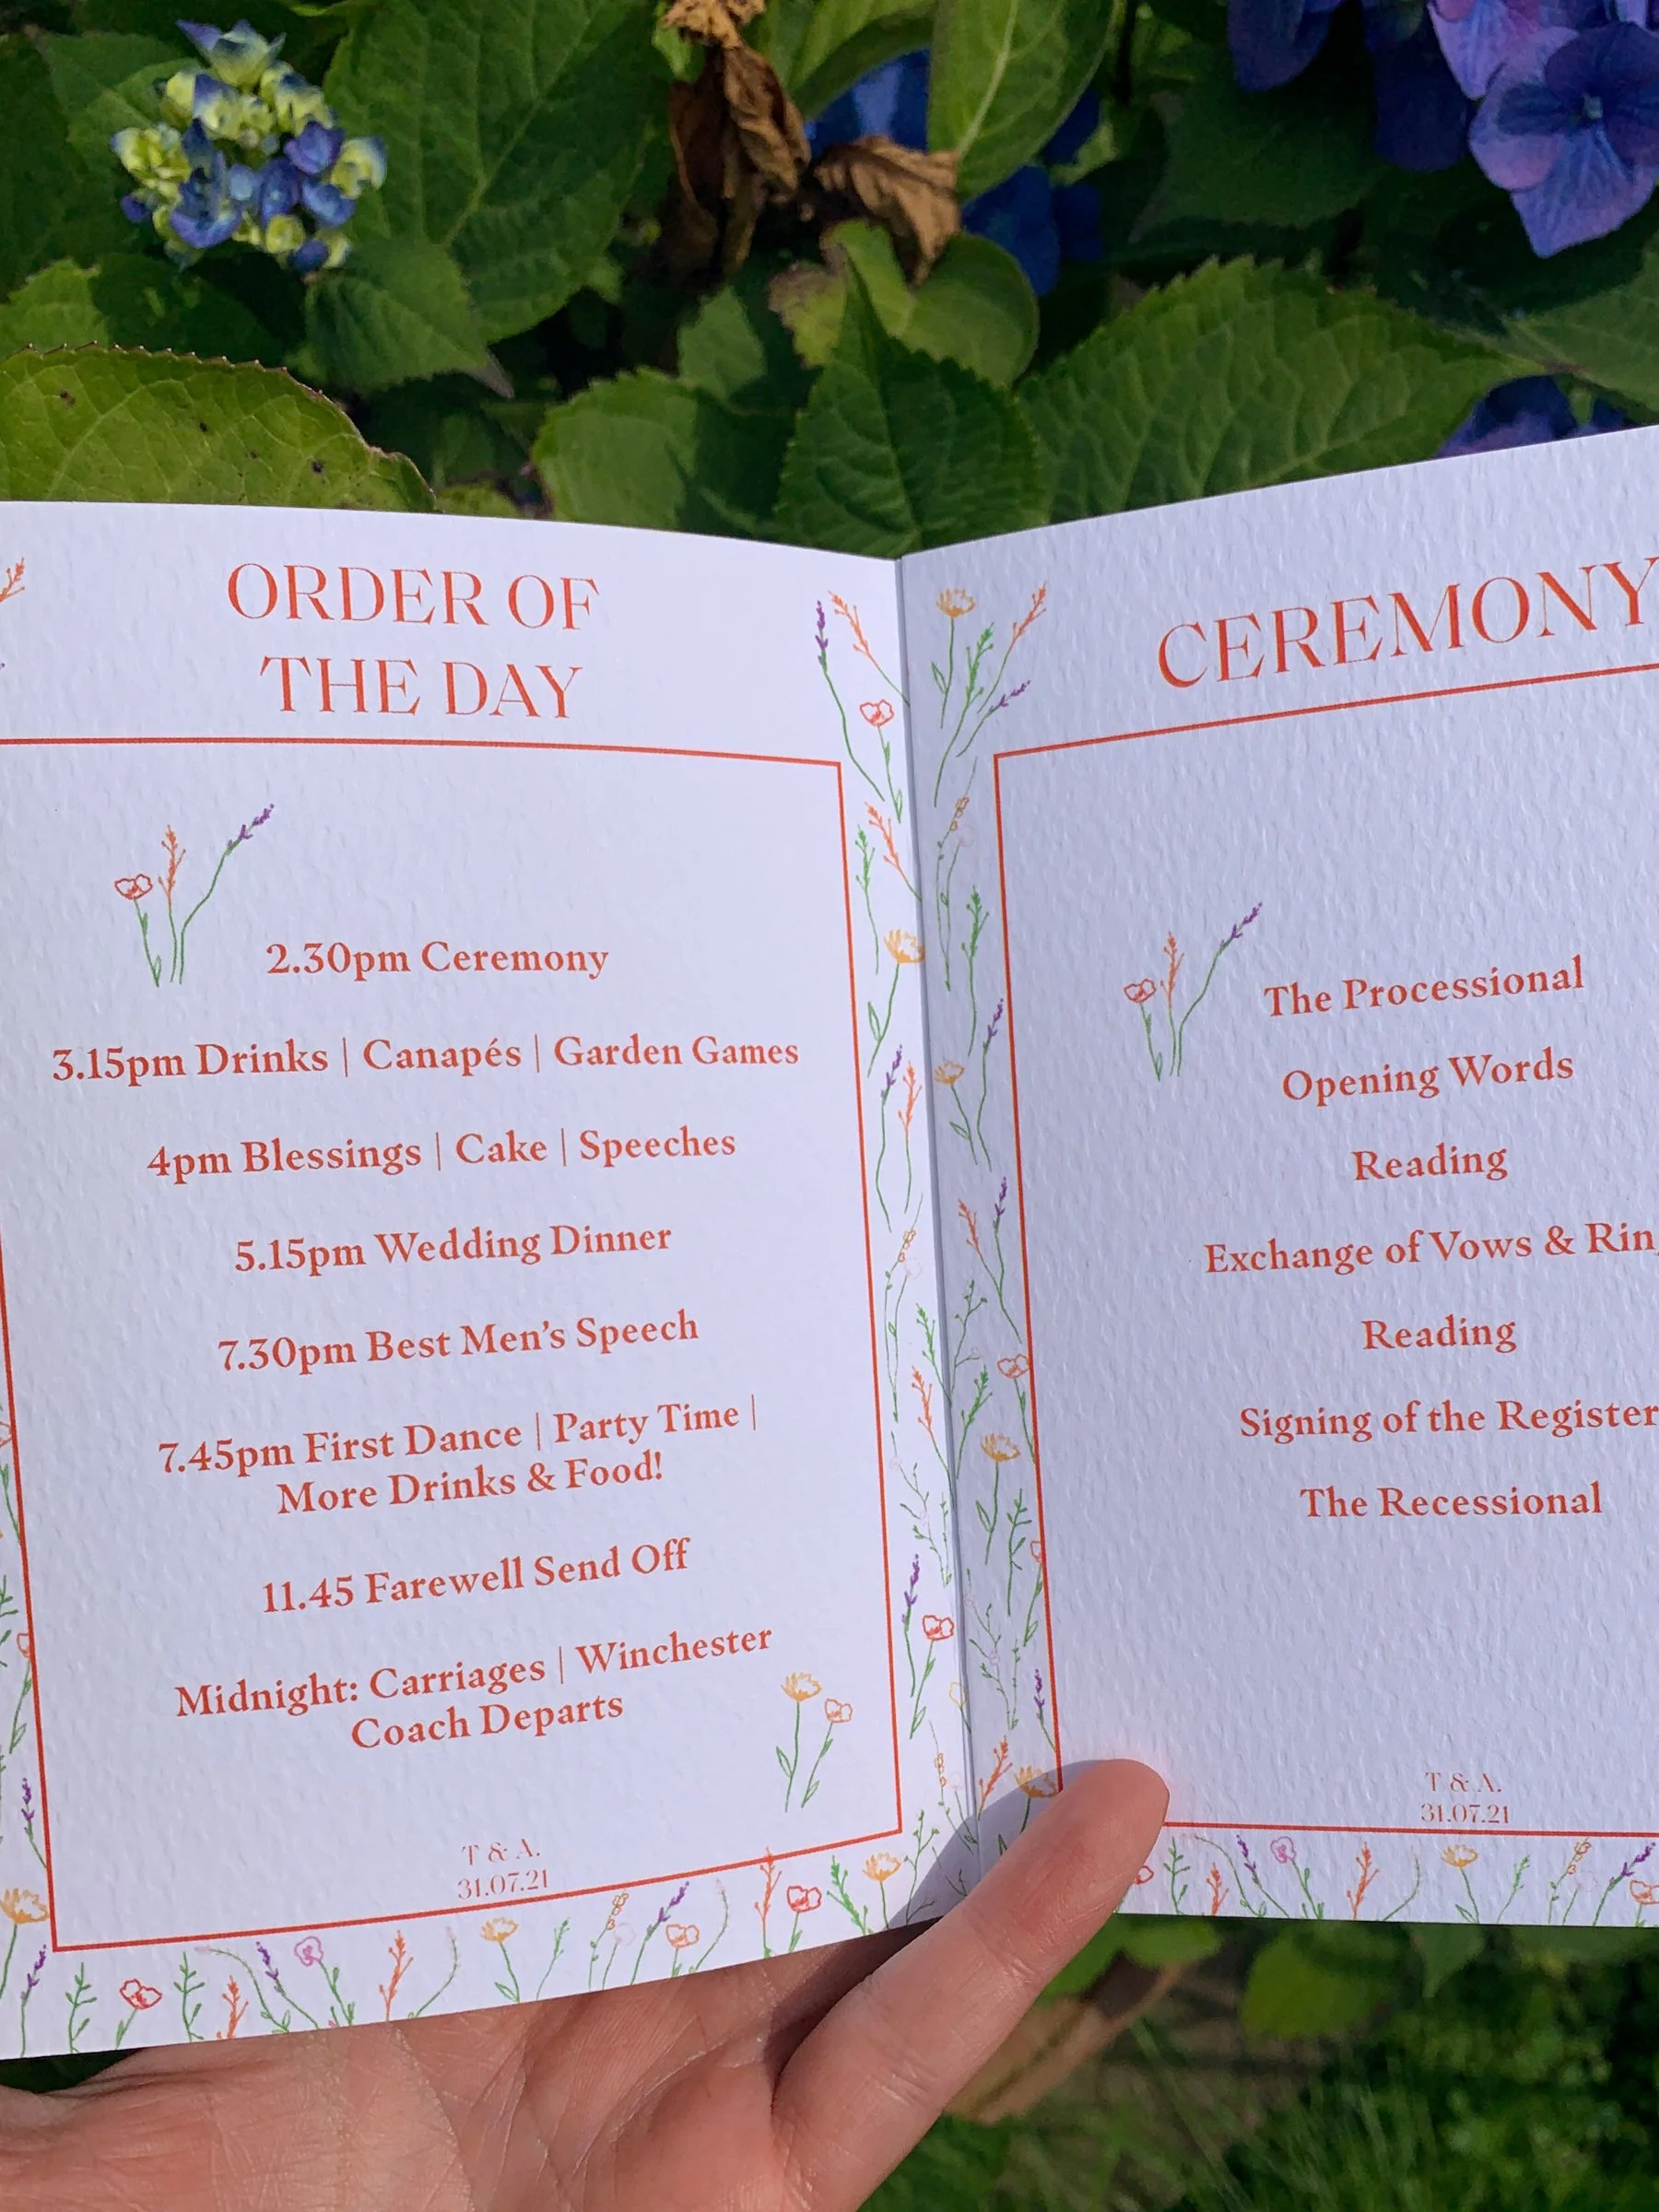 ORDER OF
THE DAY
2.30pm Ceremony
3.15pm Drinks | Canapés | Garden Games
4pm Blessings | Cake | Speeches
5.15pm Wedding Dinner
7.30pm Best Men's Speech
7.45pm First Dance | Party Time |
More Drinks & Food!
11.45 Farewell Send Off
Midnight: Carriages | Winchester
Coach Departs
T & A.
31.07.21
CEREMONY
The Processional
Opening Words
Reading
Exchange of Vows &
Reading
Signing of the Register
The Recessional
T & A.
31.07.21